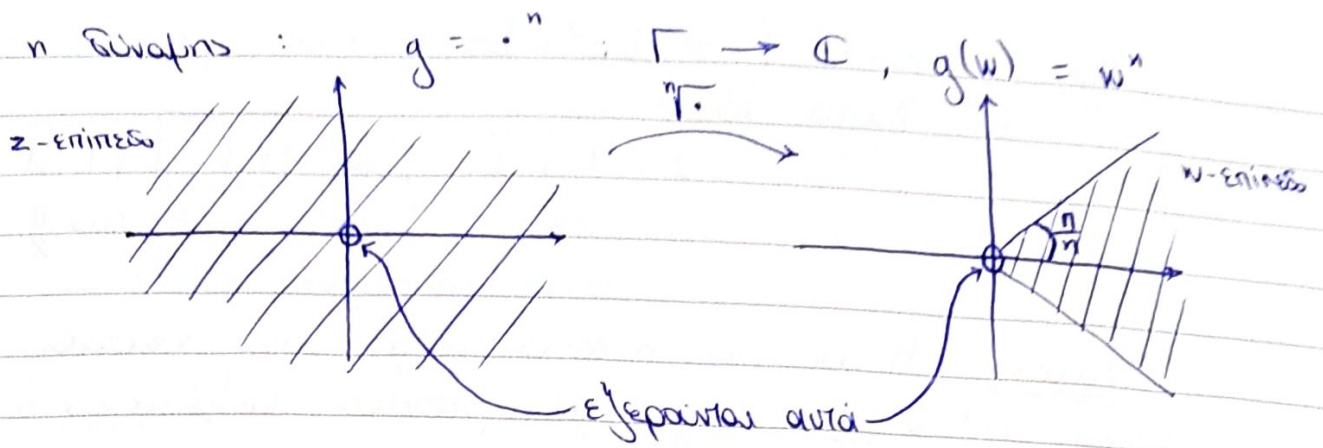 η δύναμης : g = ·ⁿ : Γ → ℂ , g(w) = wⁿ
ⁿ√·
z-επίπεδο
w-επίπεδο
π/n
εξαιρούνται αυτά